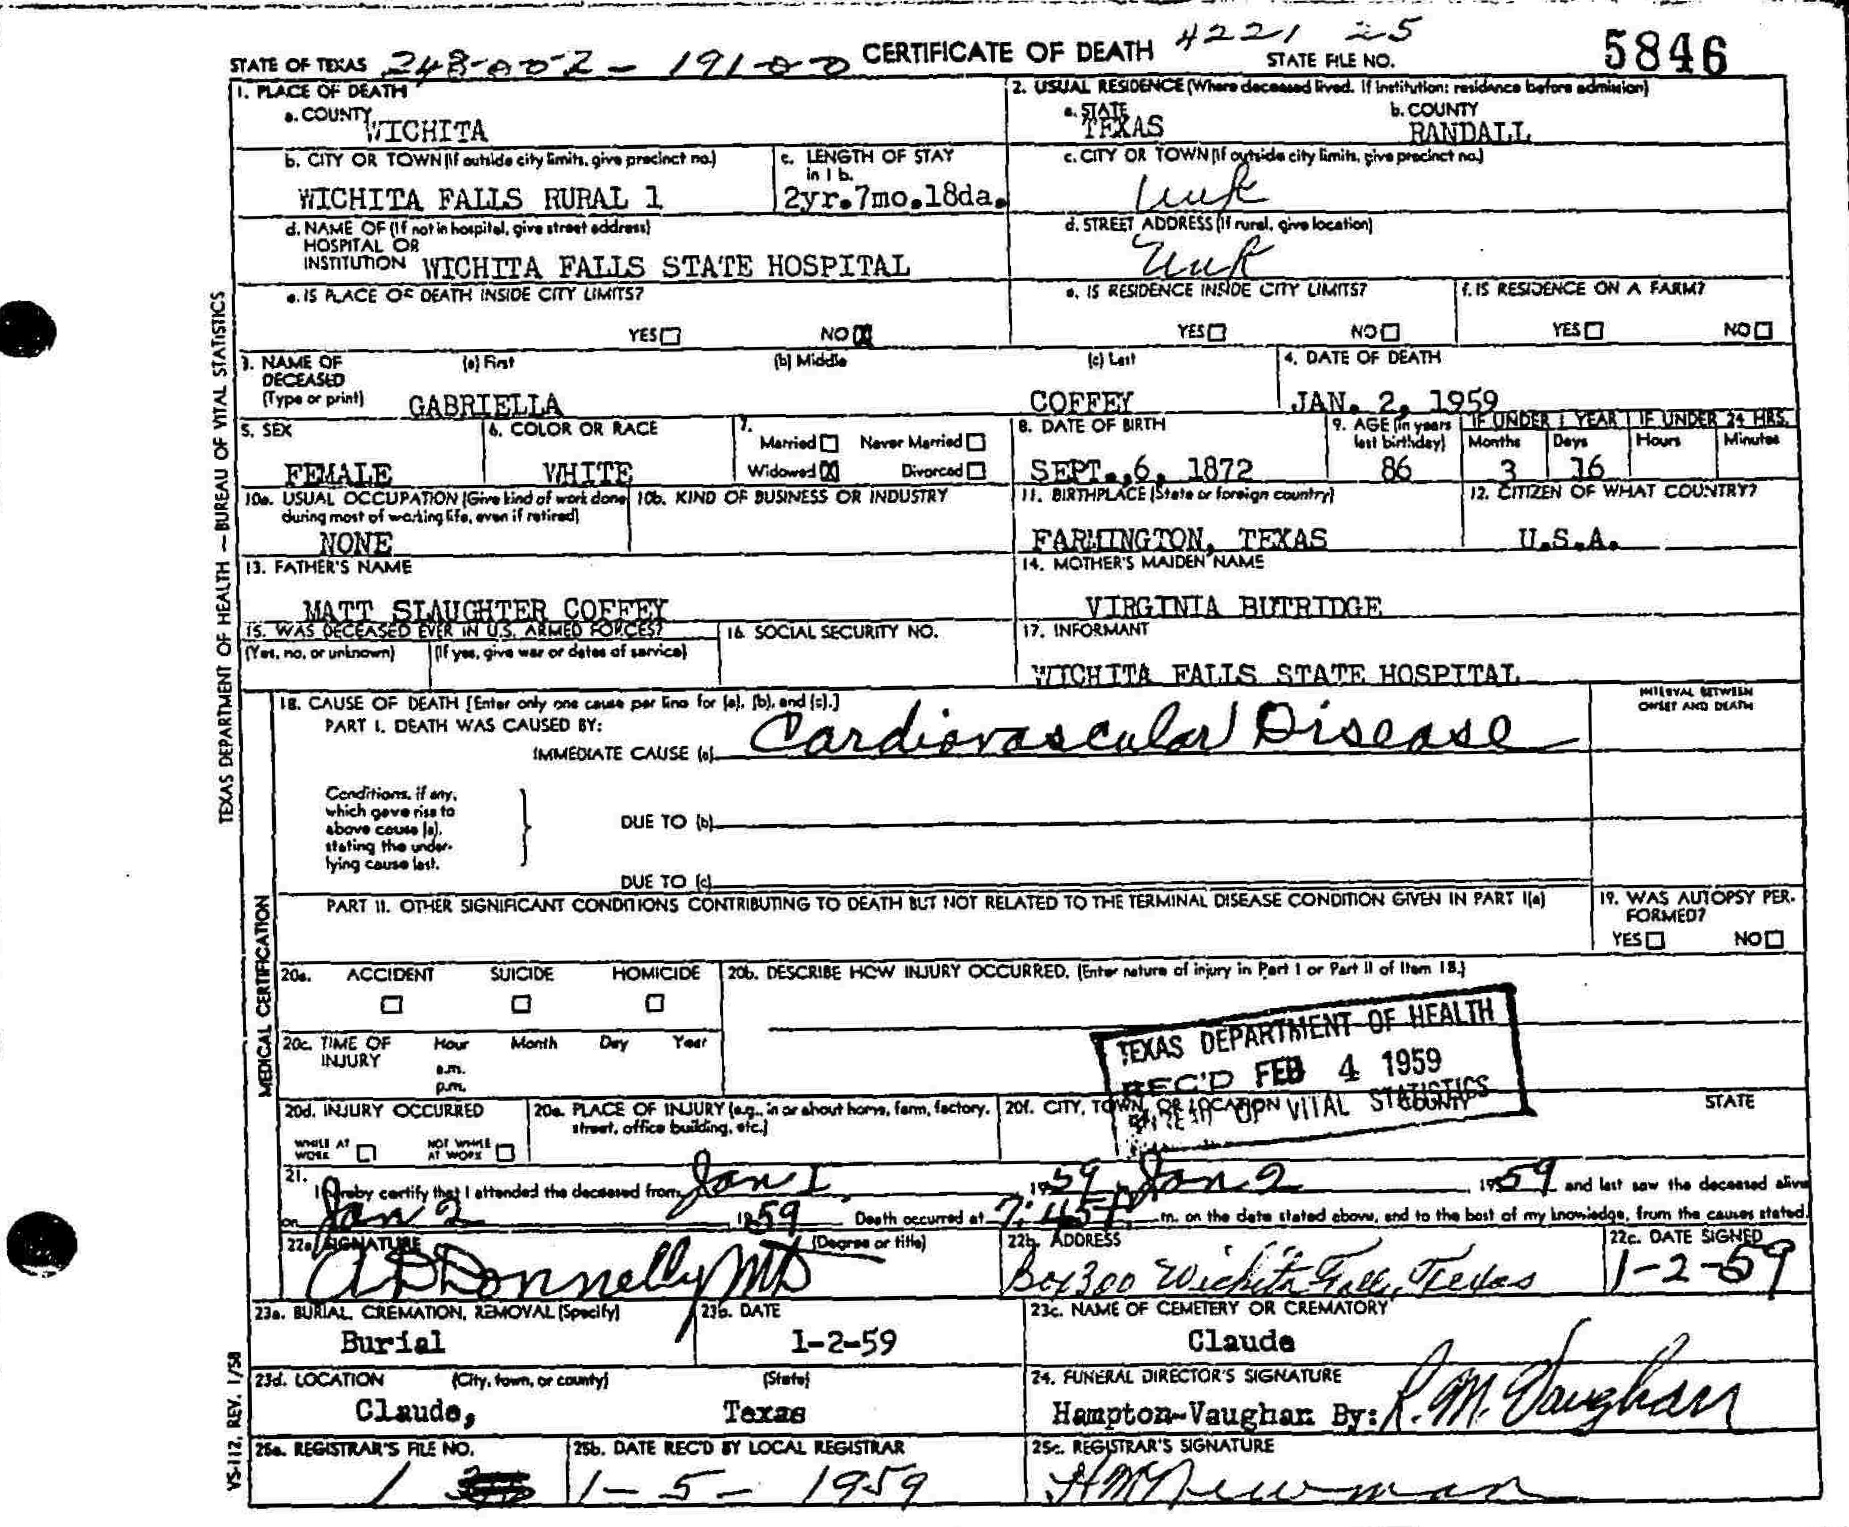 STATE OF TEXAS 248-002-191-00 CERTIFICATE OF DEATH 4221 25 STATE FILE NO. 5846
1. PLACE OF DEATH
a. COUNTY WICHITA
2. USUAL RESIDENCE (Where deceased lived. If institution: residence before admission)
a. STATE TEXAS b. COUNTY RANDALL
b. CITY OR TOWN (If outside city limits, give precinct no.) WICHITA FALLS RURAL 1
c. LENGTH OF STAY in 1 b. 2yr.7mo.18da.
c. CITY OR TOWN (If outside city limits, give precinct no.) Unk
d. NAME OF (If not in hospital, give street address) HOSPITAL OR INSTITUTION WICHITA FALLS STATE HOSPITAL
d. STREET ADDRESS (If rural, give location) Unk
e. IS PLACE OF DEATH INSIDE CITY LIMITS? YES NO X
e. IS RESIDENCE INSIDE CITY LIMITS? YES NO
f. IS RESIDENCE ON A FARM? YES NO
3. NAME OF DECEASED (Type or print) (a) First GABRIELLA (b) Middle (c) Last COFFEY
4. DATE OF DEATH JAN. 2, 1959
5. SEX FEMALE
6. COLOR OR RACE WHITE
7. Married Never Married Widowed X Divorced
8. DATE OF BIRTH SEPT., 6, 1872
9. AGE (in years last birthday) 86
IF UNDER 1 YEAR Months 3 Days 16
IF UNDER 24 HRS. Hours Minutes
10a. USUAL OCCUPATION (Give kind of work done during most of working life, even if retired) NONE
10b. KIND OF BUSINESS OR INDUSTRY
11. BIRTHPLACE (State or foreign country) FARMINGTON, TEXAS
12. CITIZEN OF WHAT COUNTRY? U.S.A.
13. FATHER'S NAME MATT SLAUGHTER COFFEY
14. MOTHER'S MAIDEN NAME VIRGINIA BUTRIDGE
15. WAS DECEASED EVER IN U.S. ARMED FORCES?
(Yes, no, or unknown) (If yes, give war or dates of service)
16. SOCIAL SECURITY NO.
17. INFORMANT WICHITA FALLS STATE HOSPITAL
18. CAUSE OF DEATH [Enter only one cause per line for (a), (b), and (c).]
INTERVAL BETWEEN ONSET AND DEATH
PART I. DEATH WAS CAUSED BY:
IMMEDIATE CAUSE (a) Cardiovascular Disease
Conditions, if any, which gave rise to above cause (a), stating the underlying cause last.
DUE TO (b)
DUE TO (c)
PART II. OTHER SIGNIFICANT CONDITIONS CONTRIBUTING TO DEATH BUT NOT RELATED TO THE TERMINAL DISEASE CONDITION GIVEN IN PART I(a)
19. WAS AUTOPSY PERFORMED? YES NO
20a. ACCIDENT SUICIDE HOMICIDE
20b. DESCRIBE HOW INJURY OCCURRED. (Enter nature of injury in Part I or Part II of Item 18.)
20c. TIME OF INJURY Hour a.m. p.m. Month Day Year
TEXAS DEPARTMENT OF HEALTH
REC'D FEB 4 1959
BUREAU OF VITAL STATISTICS
20d. INJURY OCCURRED WHILE AT WORK NOT WHILE AT WORK
20e. PLACE OF INJURY (e.g., in or about home, farm, factory, street, office building, etc.)
20f. CITY, TOWN, OR LOCATION COUNTY STATE
21. I hereby certify that I attended the deceased from Jan 1 1959, Jan 2 1959 and last saw the deceased alive
on Jan 2 1959. Death occurred at 7:45 P m. on the date stated above, and to the best of my knowledge, from the causes stated.
22a. SIGNATURE (Degree or title) A D Donnelly MD
22b. ADDRESS Box 300 Wichita Falls, Texas
22c. DATE SIGNED 1-2-59
23a. BURIAL, CREMATION, REMOVAL (Specify) Burial
23b. DATE 1-2-59
23c. NAME OF CEMETERY OR CREMATORY Claude
23d. LOCATION (City, town, or county) Claude, (State) Texas
24. FUNERAL DIRECTOR'S SIGNATURE Hampton-Vaughan By: R. M. Vaughan
25a. REGISTRAR'S FILE NO. 1
25b. DATE REC'D BY LOCAL REGISTRAR 1-5-1959
25c. REGISTRAR'S SIGNATURE H M Newman
TEXAS DEPARTMENT OF HEALTH — BUREAU OF VITAL STATISTICS
MEDICAL CERTIFICATION
VS-112, REV. 1/58